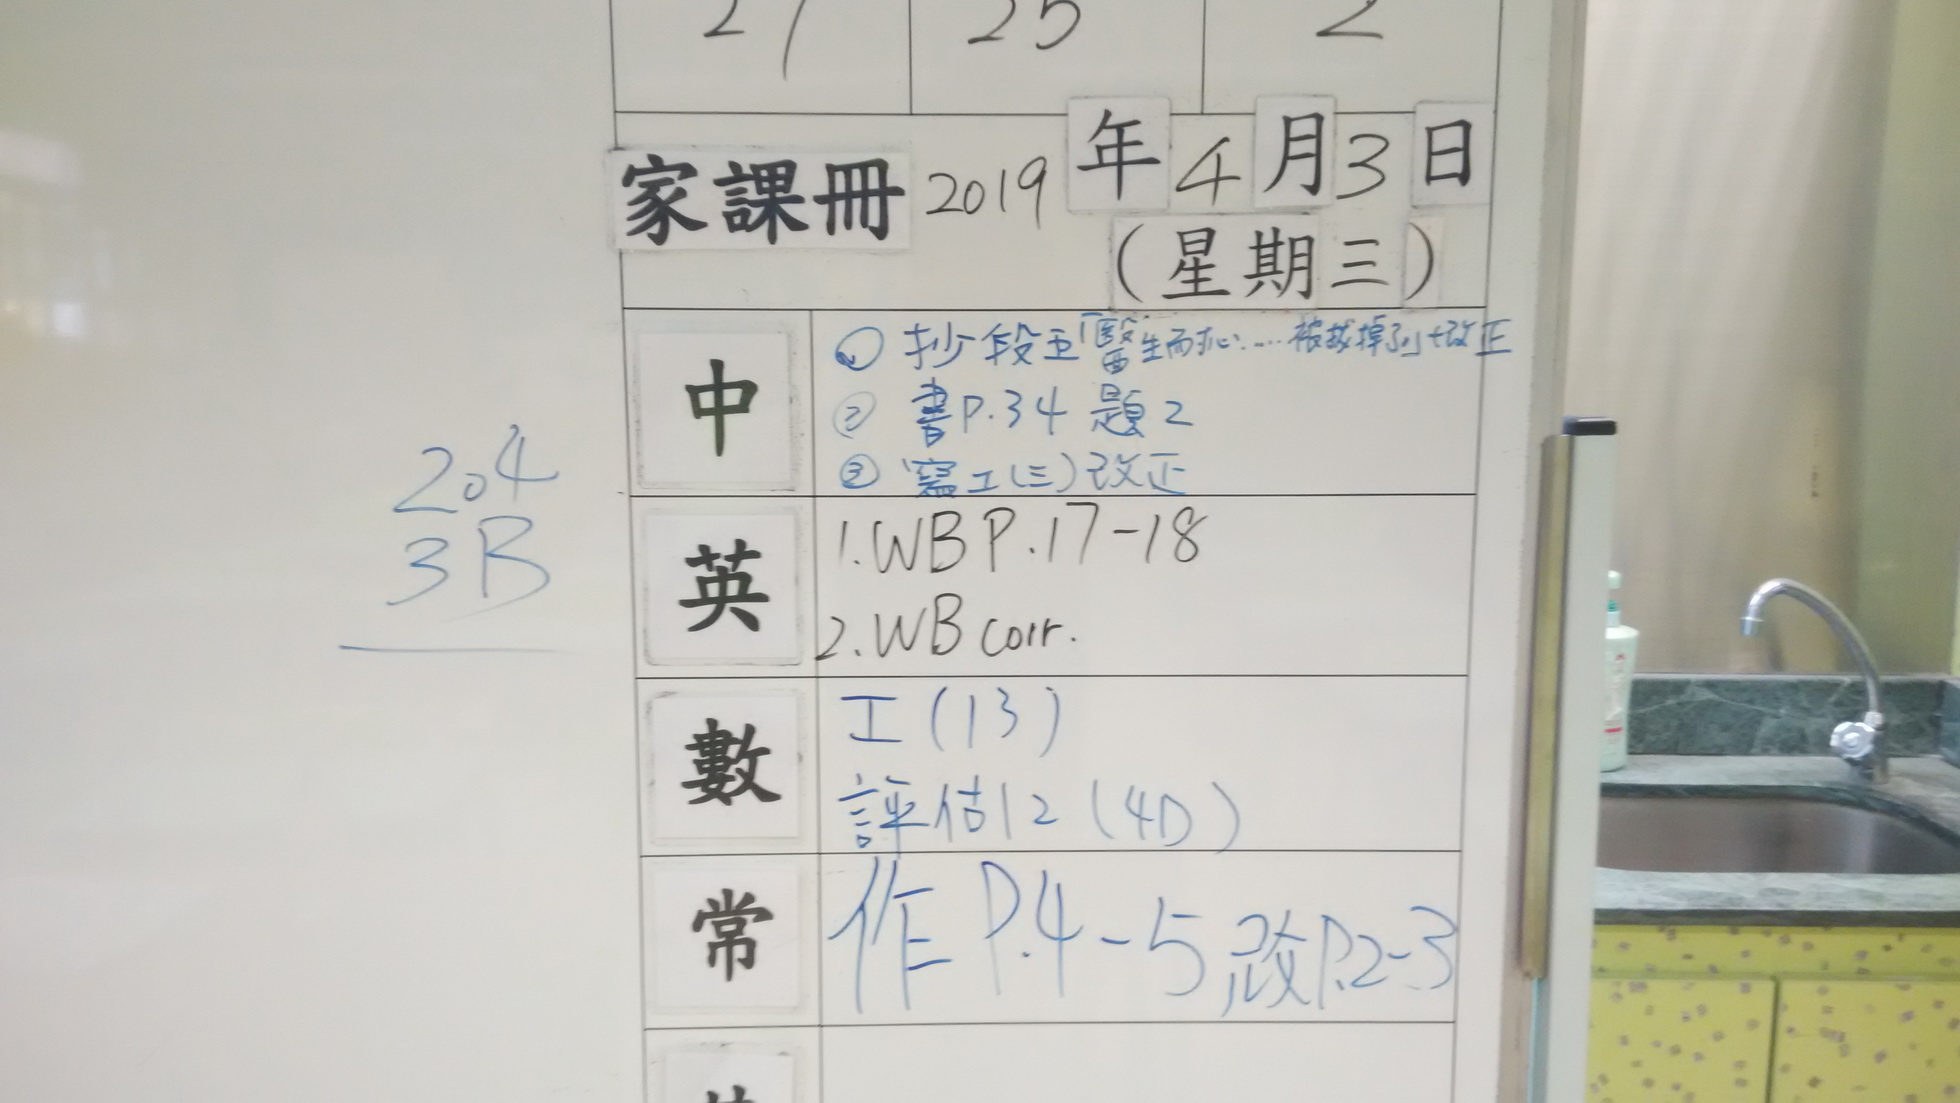 27 25 2
家課冊 2019 年 4 月 3 日
(星期三)
中
① 抄段五「醫生而 …… 被拔掉了」+改正
② 書P.34 題2
③ 寫工(三)改正
英
1.WB P.17-18
2.WB corr.
數
工(13)
評估12(4D)
常
作 P.4-5 改P.2-3
204
3B